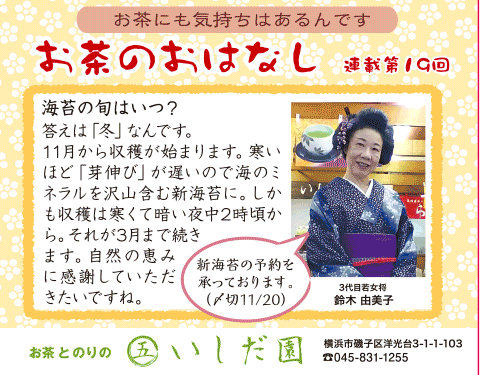 お茶にも気持ちはあるんです
お茶のおはなし 連載第19回
海苔の旬はいつ?
答えは「冬」なんです。
11月から収穫が始まります。寒い
ほど「芽伸び」が遅いので海のミ
ネラルを沢山含む新海苔に。しか
も収穫は寒くて暗い夜中2時頃か
ら。それが3月まで続き
ます。自然の恵み
に感謝していただ
きたいですね。
新海苔の予約を
承っております。
(〆切11/20)
3代目若女将
鈴木 由美子
お茶とのりの 五 いしだ園
横浜市磯子区洋光台3-1-1-103
☎045-831-1255